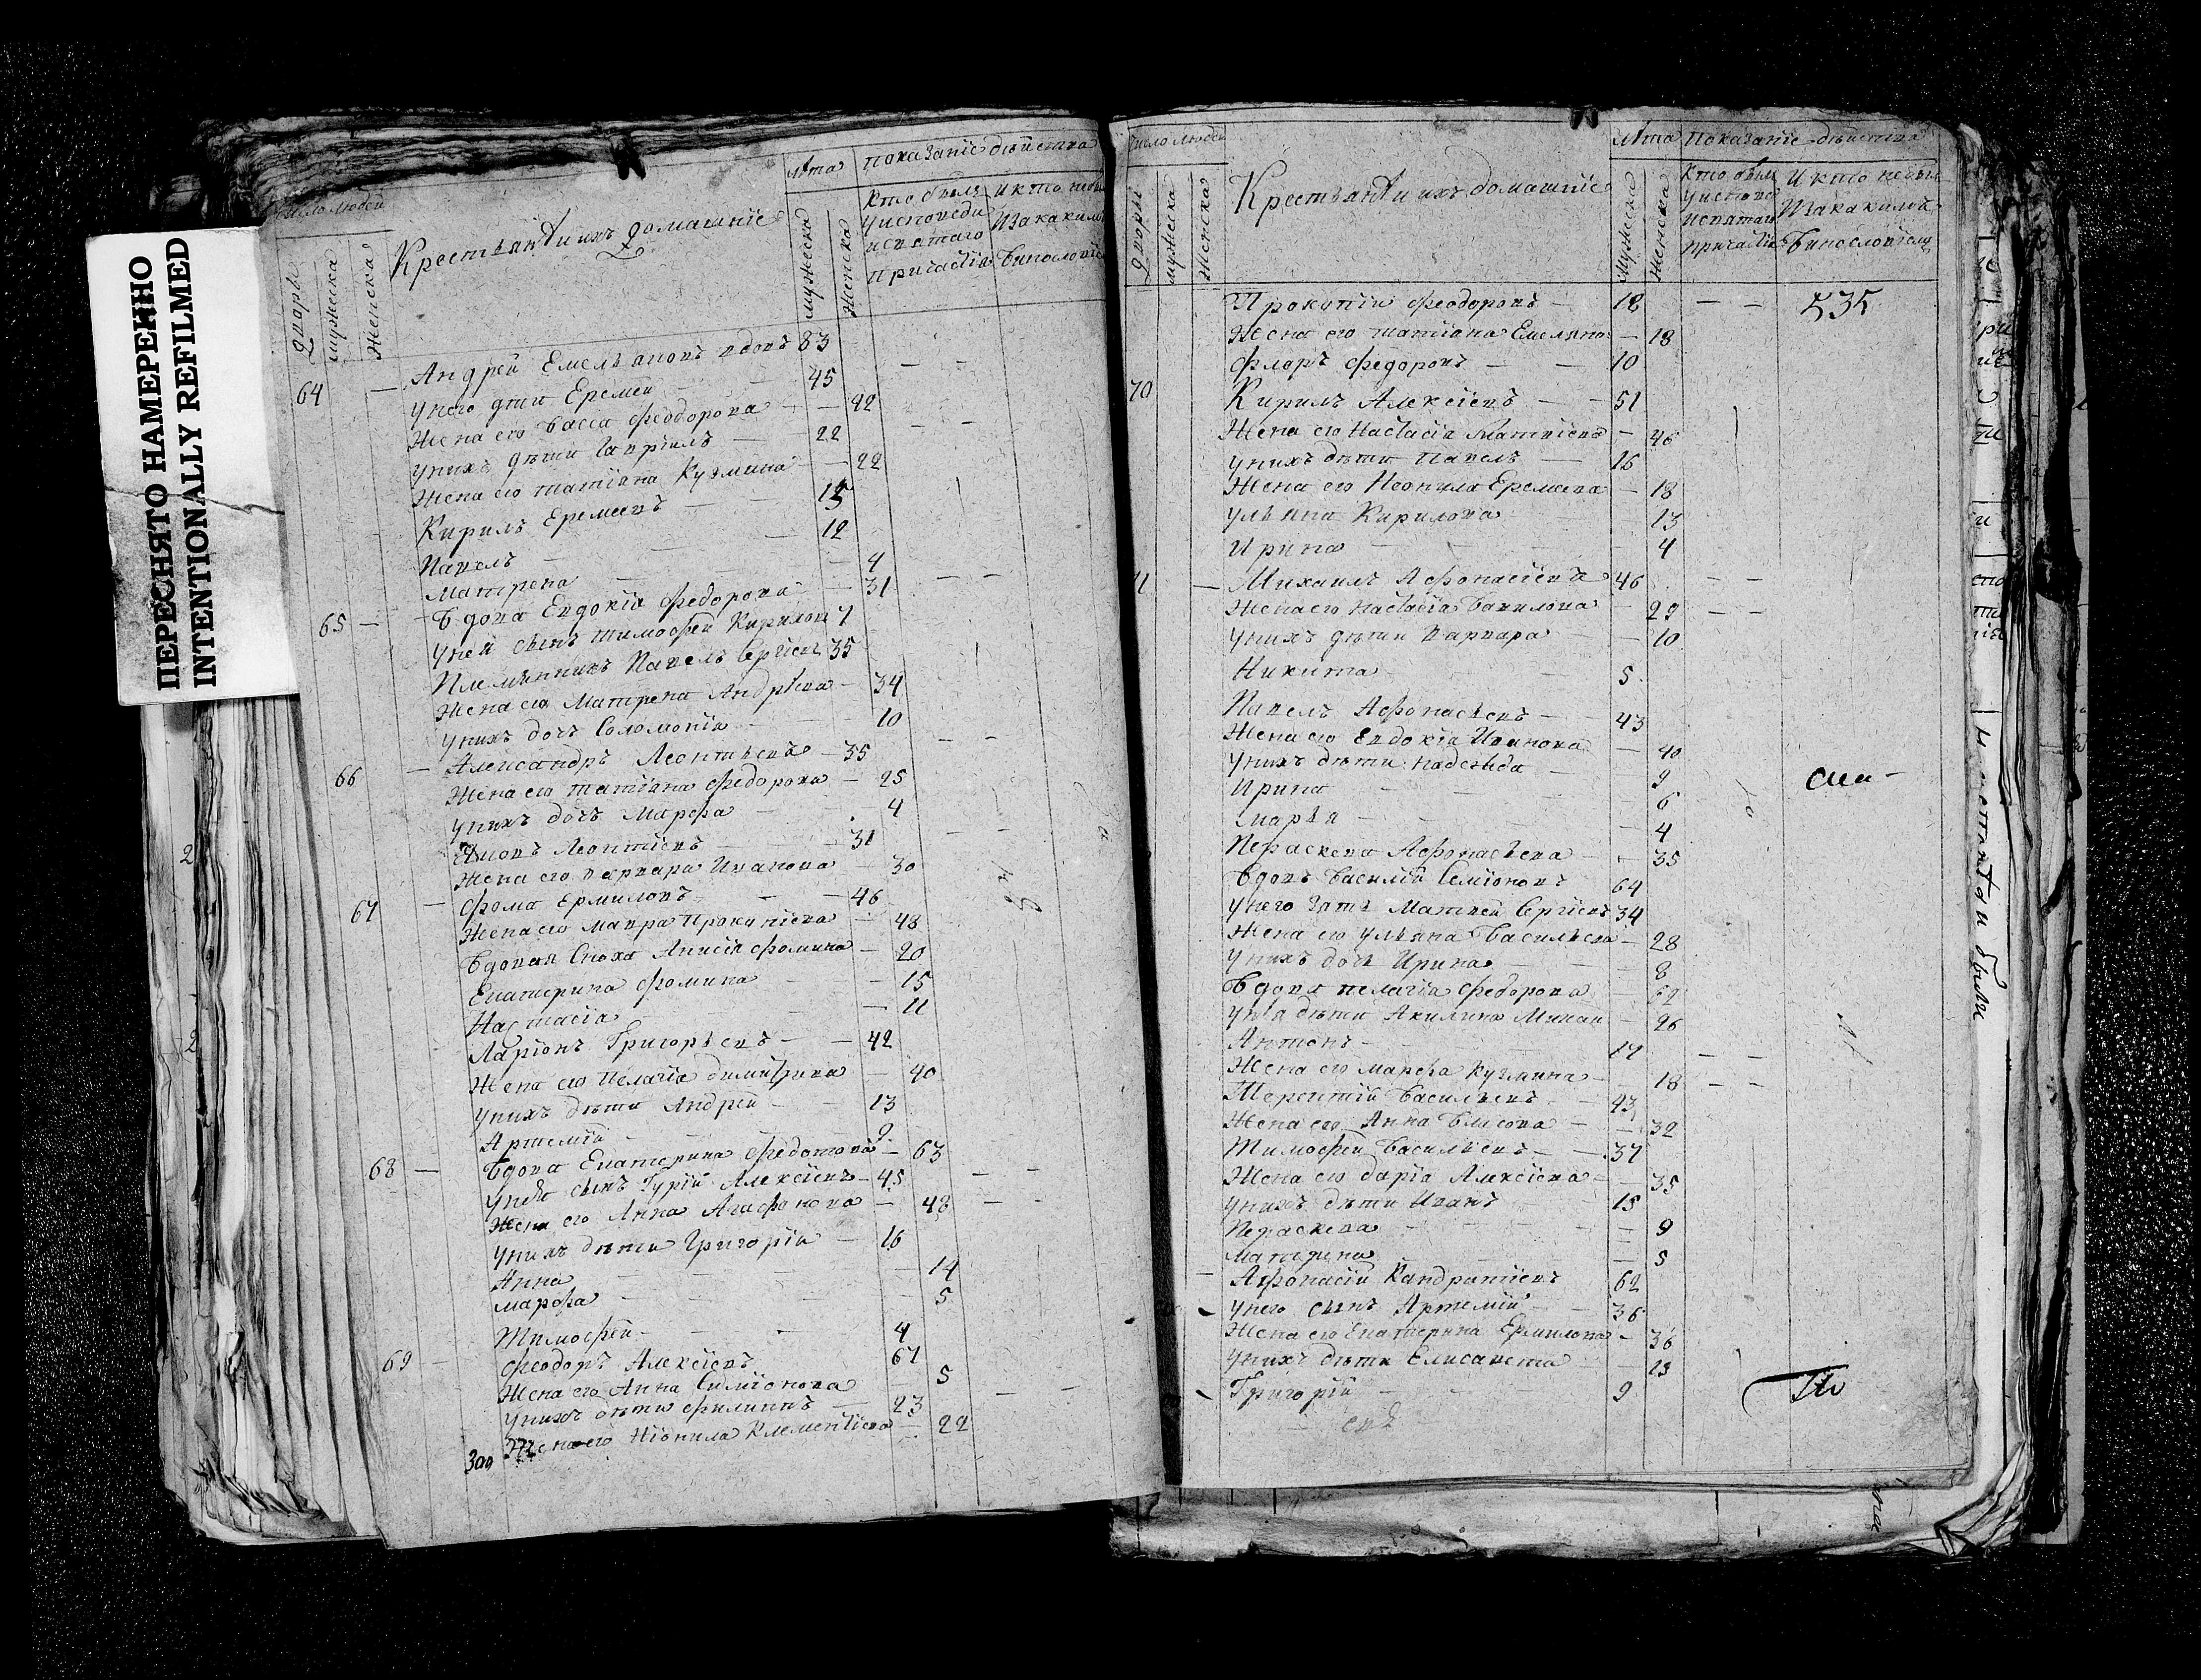 ПЕРЕСНЯТО НАМЕРЕННО
INTENTIONALLY REFILMED
Число людей
Крестьянѣ и ихъ домашніе
Лѣта
показаніе дѣйства
Дворы
мужеска
женска
мужеска
женска
Кто былъ
у исповеди
и святаго
причастія
и кто небы
за какимъ
винословіе
64 — Андрей Емельяновъ вдовъ 83
у него дѣти Еремей 45
Жена его Васса Феодорова — 42
у нихъ дѣти Гаврилъ — 22
Жена его татіяна Кузмина — 22
Кирилъ Еремеевъ — 15
Павелъ — 12
Матрена — 4
65 — Вдова Евдокія Федорова — 31
у ней сынъ тимофей Кирилов 7
Племянникъ Павелъ Сергіевъ 35
Жена его Матрена Андрѣева — 34
у нихъ дочь Соломонія — 10
66 — Александръ Леонтьевъ — 35
Жена его татіяна Федорова — 25
у нихъ дочь Марфа — 4
Леонтіевъ — 31
Жена его варвара Иванова — 30
67 — Фома Ермиловъ — 46
Жена его мавра Прокупіева — 48
Вдовая Сноха Анисія Фомина — 20
Екатерина Фомина — 15
Настасіа — 11
Ларіонъ Григорьевъ — 42
Жена его Пелагіа димитріева — 40
у нихъ дѣти Андрей — 13
Артемій — 9
68 — Вдова Екатерина Федотова — 63
у нея сынъ Гурій Алексіевъ — 45
Жена его Анна Агафонова — 48
у нихъ дѣти Григорій — 16
Анна — 14
марфа — 5
Тимофей — 4
69 — Феодоръ Алексіевъ 67
Жена его Анна Симіонова 5
у нихъ дѣти филиппъ — 23
Жена его Нионила Клементіева — 22
Число людей
Крестьянѣ и ихъ домашніе
Лѣта
Показаніе дѣйства
Дворы
мужеска
женска
Мужеска
женска
Кто был
у испове
и святаи
причастіе
И кто небы
За какимъ
винословіем
Прокупій Феодоровъ — 18 — — 535
Жена его татіана Емеляно — 18
Флоръ Федоровъ — 10
70 Кирилъ Алексіевъ — 51
Жена его Настасія Матвіева — 46
у нихъ дѣти Павелъ — 16
Жена его Неонила Еремеева — 18
ульяна Кирилова — 13
Ирина — 4
71 — Михаилъ Афонасіевъ 46 — —
Жена его Настасіа Вавилова — 29 — —
у нихъ дѣти варвара — 10
Никита — 5
Павелъ Афонасьевъ — 43
Жена его Евдокіа Иванова — 40
у нихъ дѣти надежда — 9
Ирина — 6
марья — 4
Перасковa Афонасьева — 35
Вдовъ Василій Семіоновъ 64
у него Зять Матвей Сергіевъ 34
Жена его ульяна Васильева — 28
у нихъ дочь Ирина — 8
Вдова пелагіа Федорова — 62
у нея дѣти Акилина Минаи — 26
Антонъ — 17 — —
Жена его марфа Кузмина — 18 — —
Терентій Васильевъ — 43
Жена его Анна Власова — 32
Тимофей Васильевъ — 37
Жена его дарія Алексіева — 35
у нихъ дѣти Иванъ — 15
Пераскева — 9
Матрена — 5
— Афонасій Кандратіевъ 62
у него сынъ Артемій — 36
Жена его Екатерина Ермилова — 36
у нихъ дѣти Елисавета — 13
Григорій — 9